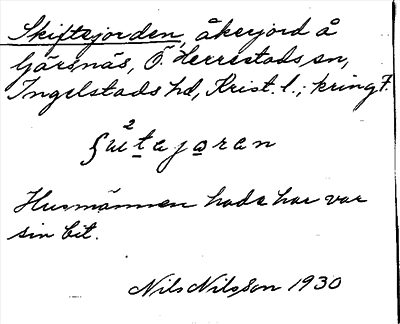 Skiftsjorden, åkerjord å
Gärsnäs, Ö. Herrestads sn,
Ingelstads hd, Krist. l.; kring F.
Husmännen hade har var
sin bit.
Nils Nilsson 1930